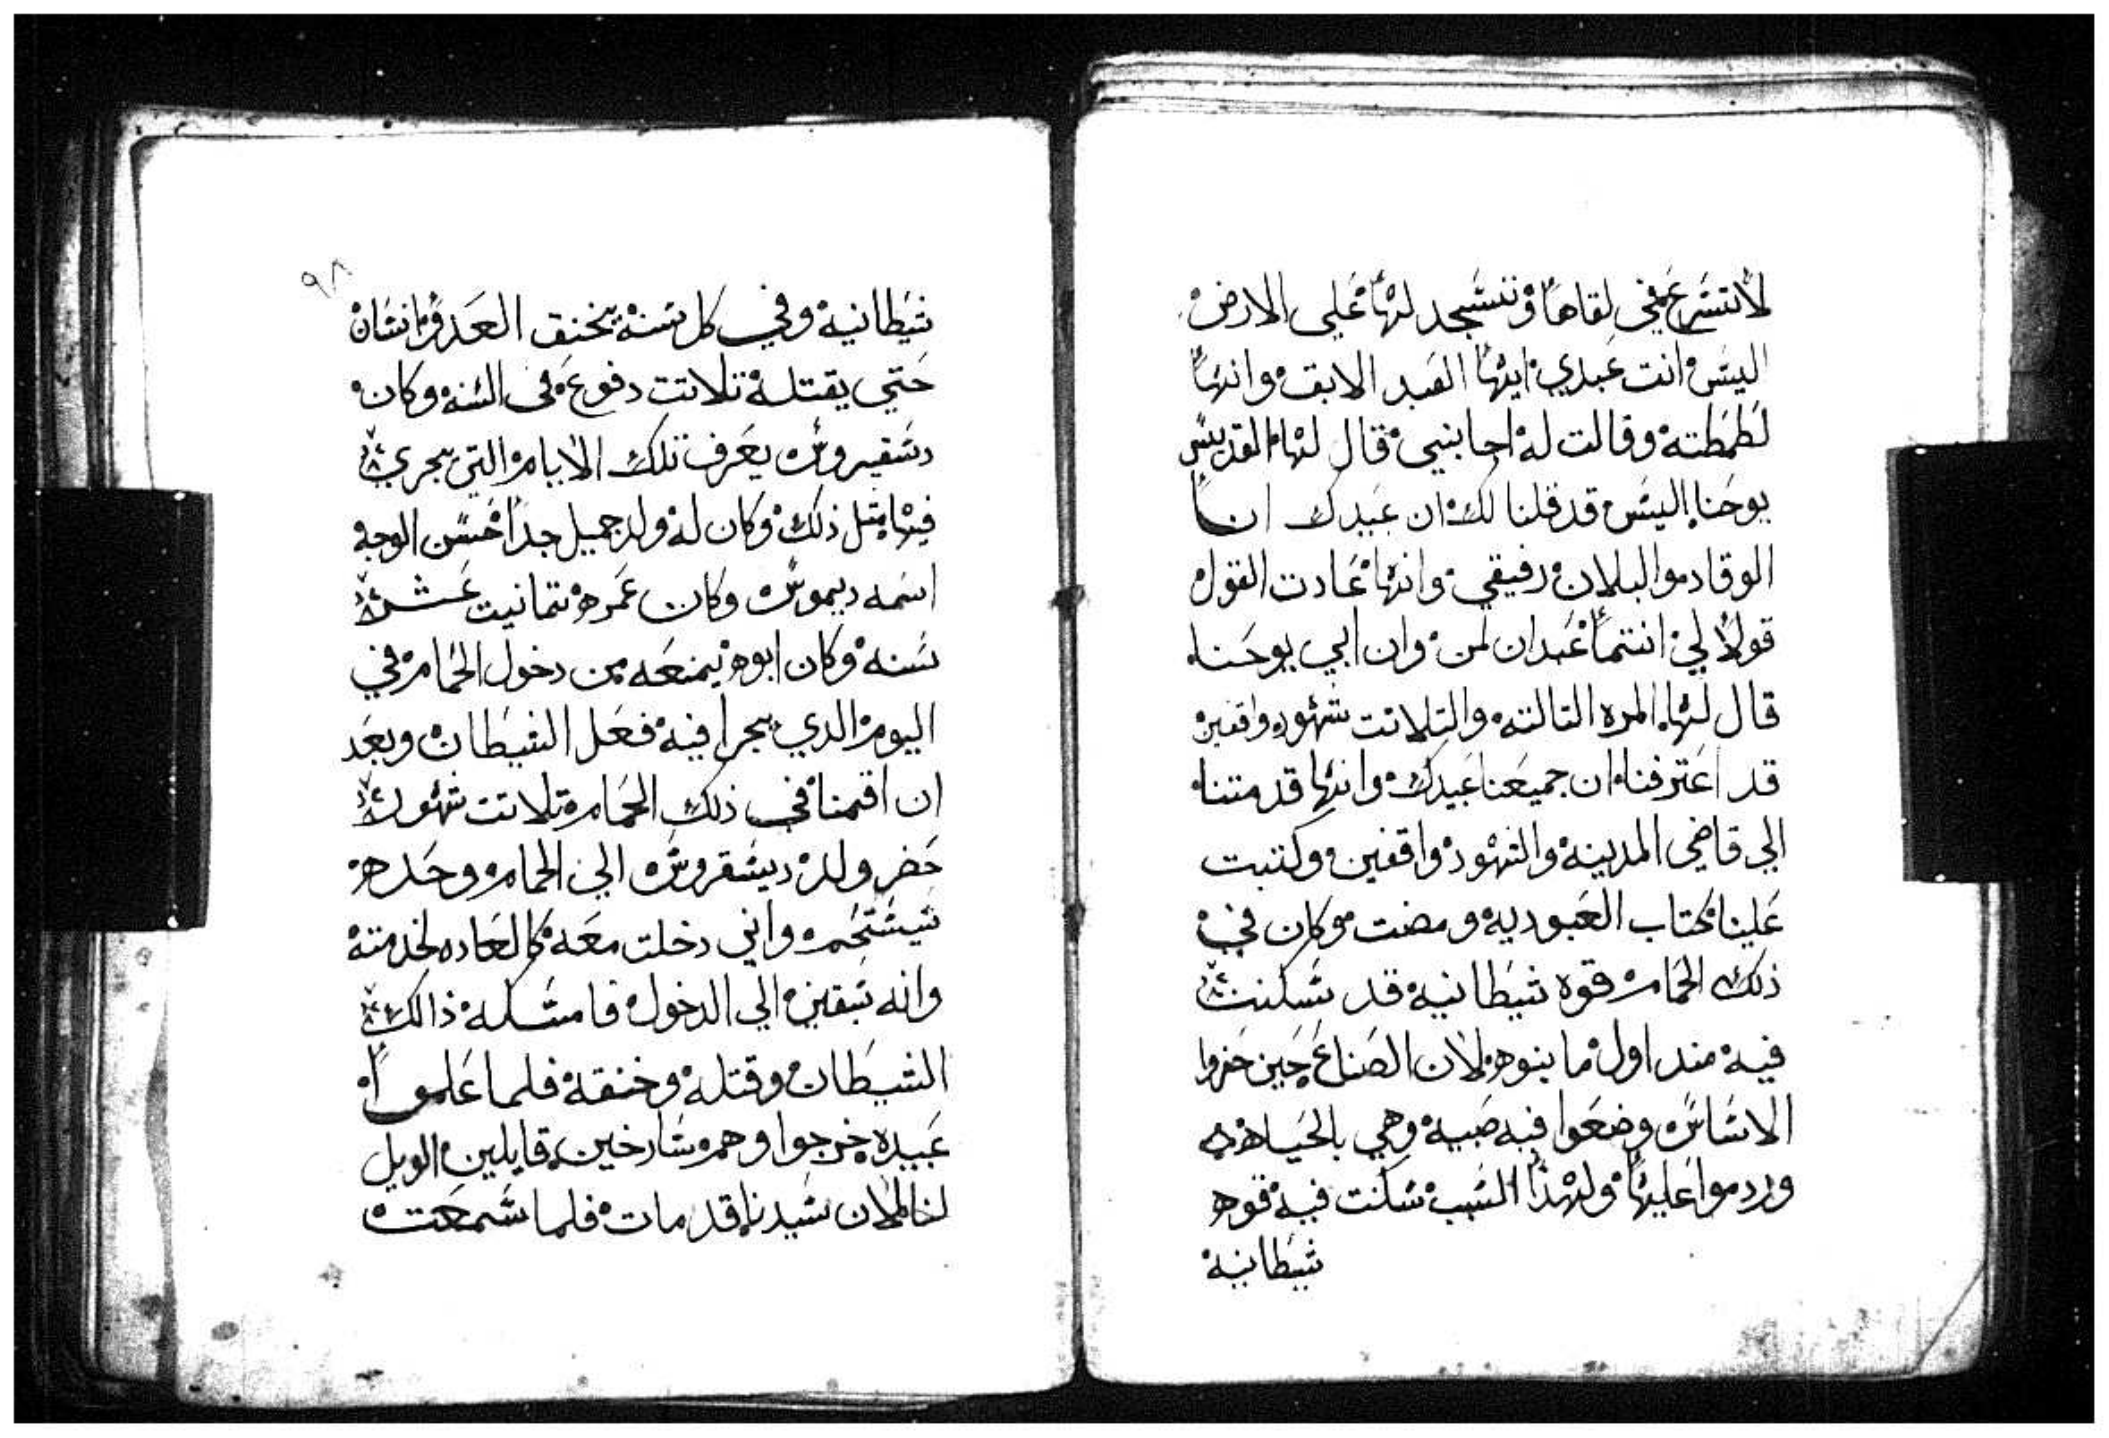 لا تتسرع في لقاها وتسجد لها على الارض
اليس انت عبدي ايها العبد الابق وانها
لطمطته وقالت له اجابنيي قال لها القديس
يوحنا اليس قد قلنا لك ان عبيدك انا
الوقاد موا البلان رفيقي وانها عادت القول
قولا لي انتما عبدان لمن وان ابي يوحنا
قال لها المره التالته والتلاتت شهود واقفين
قد اعترفنا ان جميعنا عبيدك وانها قدمتنا
الي قاضي المدينه والشهود واقفين وكتبت
علينا كتاب العبوديه ومضت موكان في
ذلك الحمام قوه شيطانيه قد سكنت
فيه مند اول ما بنوه لان الصناع حين حفروا
الاساس وضعوا فيه صبيه وهي بالحياه
وردموا عليها ولهذا السبب سكنت فيه قوه
شيطانيه
٩٨
شيطانيه وفي كل سنه يخنق العدو انسان
حتي يقتله تلاتت دفوع في السنه وكان
دسقيروس يعرف تلك الايام التي يجري
فيها متل ذلك وكان له ولد جميل جدا حسن الوجه
اسمه ديموس وكان عمره تمانيت عشر
سنه وكان ابوه يمنعه من دخول الحمام في
اليوم الدي يجرا فيه فعل الشيطان وبعد
ان اقمنا في ذلك الحمام تلاتت شهور
حضر ولد ديسقروس الي الحمام وحده
يستحم واني دخلت معه كالعاده لخدمته
وانه سبقني الي الدخول فامسكه ذالك
الشيطان وقتله وخنقه فلما علموا
عبيده خرجوا وهم سارخين قايلين الويل
لنا لان سيدنا قد مات فلما سمعت